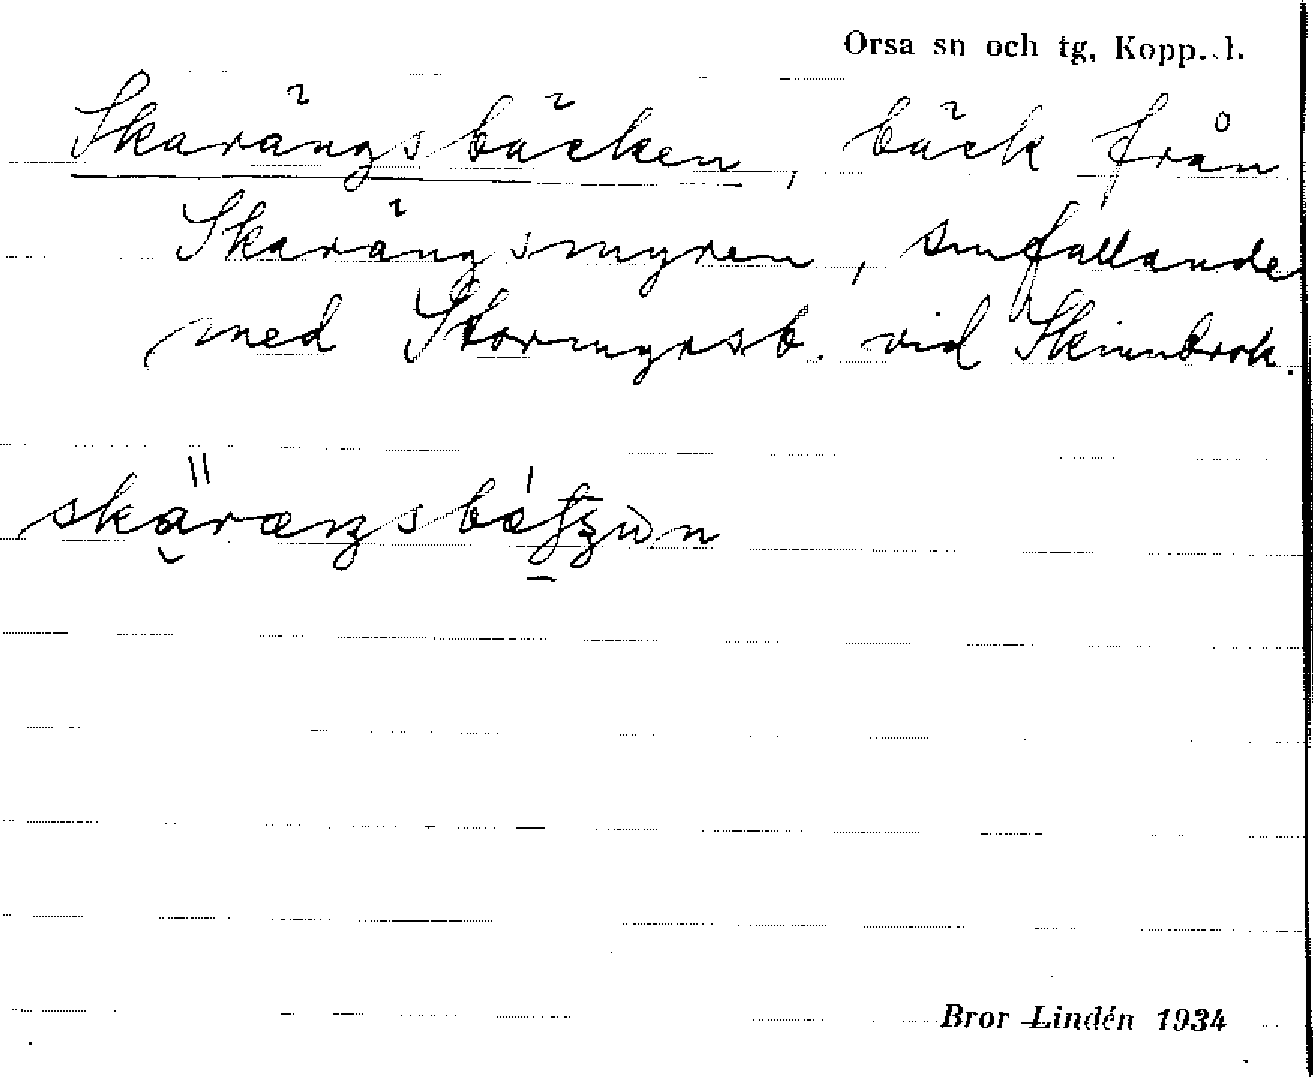 Orsa sn och tg, Kopp. l.
Skarängsbäcken, bäck från
Skarängsmyren, smfallande
med Stormyrsb. vid Skinnbrok.
Bror Lindén 1934